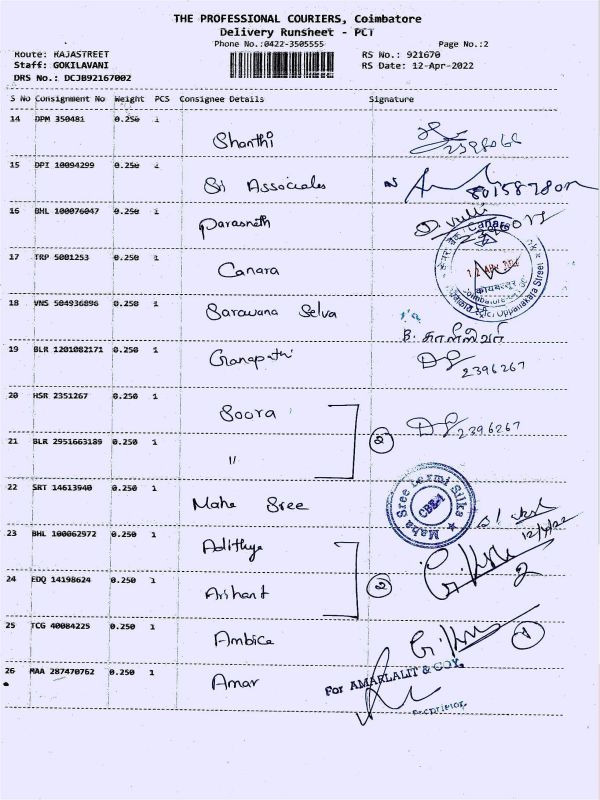 THE PROFESSIONAL COURIERS, Coimbatore
Delivery Runsheet - PCT
Phone No.:0422-3505555 Page No.:2
Route: RAJASTREET RS No.: 921670
Staff: GOKILAVANI RS Date: 12-Apr-2022
DRS No.: DCJB92167002
S No Consignment No Weight PCS Consignee Details Signature
14 DPM 350481 0.250 1
Shanthi
15 DPI 10094299 0.250 1
Sri Associates
16 BHL 100076047 0.250 1
Parasnath
17 TRP 5001253 0.250 1
Canara
18 VNS 504936896 0.250 1
Sarawana Selva
19 BLR 1201082171 0.250 1
Ganapathi 2396267
20 HSR 2351267 0.250 1
Soora 2396267
21 BLR 2951663189 0.250 1
" 2
22 SRT 14613940 0.250 1
Maha Sree
Maha Sree Laxmi Silks
CBE-1
12/4/22
23 BHL 100062972 0.250 1
Adithya
24 EDQ 14198624 0.250 1
Arihant 2
25 TCG 40084225 0.250 1
Ambica 1
26 MAA 287470762 0.250 1
Amar
For AMARLALIT & COY.
Proprietor